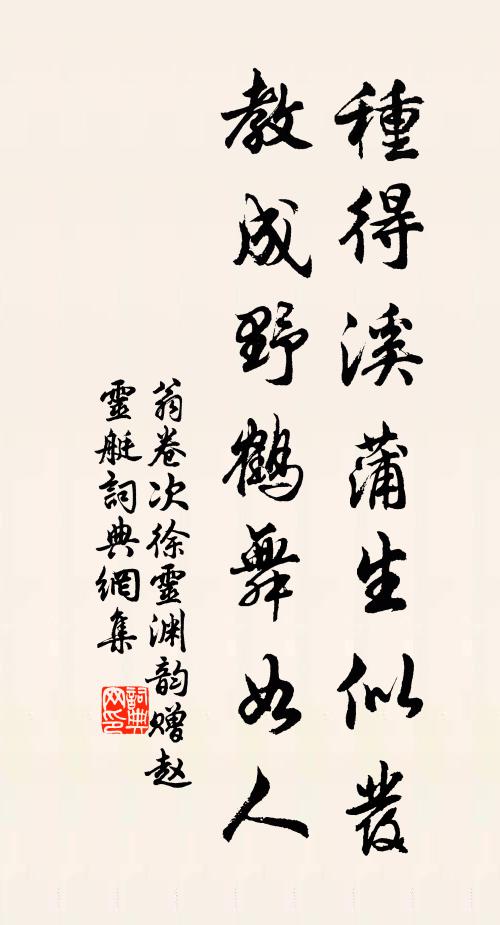 種得溪蒲生似發
教成野鶴舞如人
翁卷次徐靈淵韵贈赵
靈艇詞典網集
詞典网印